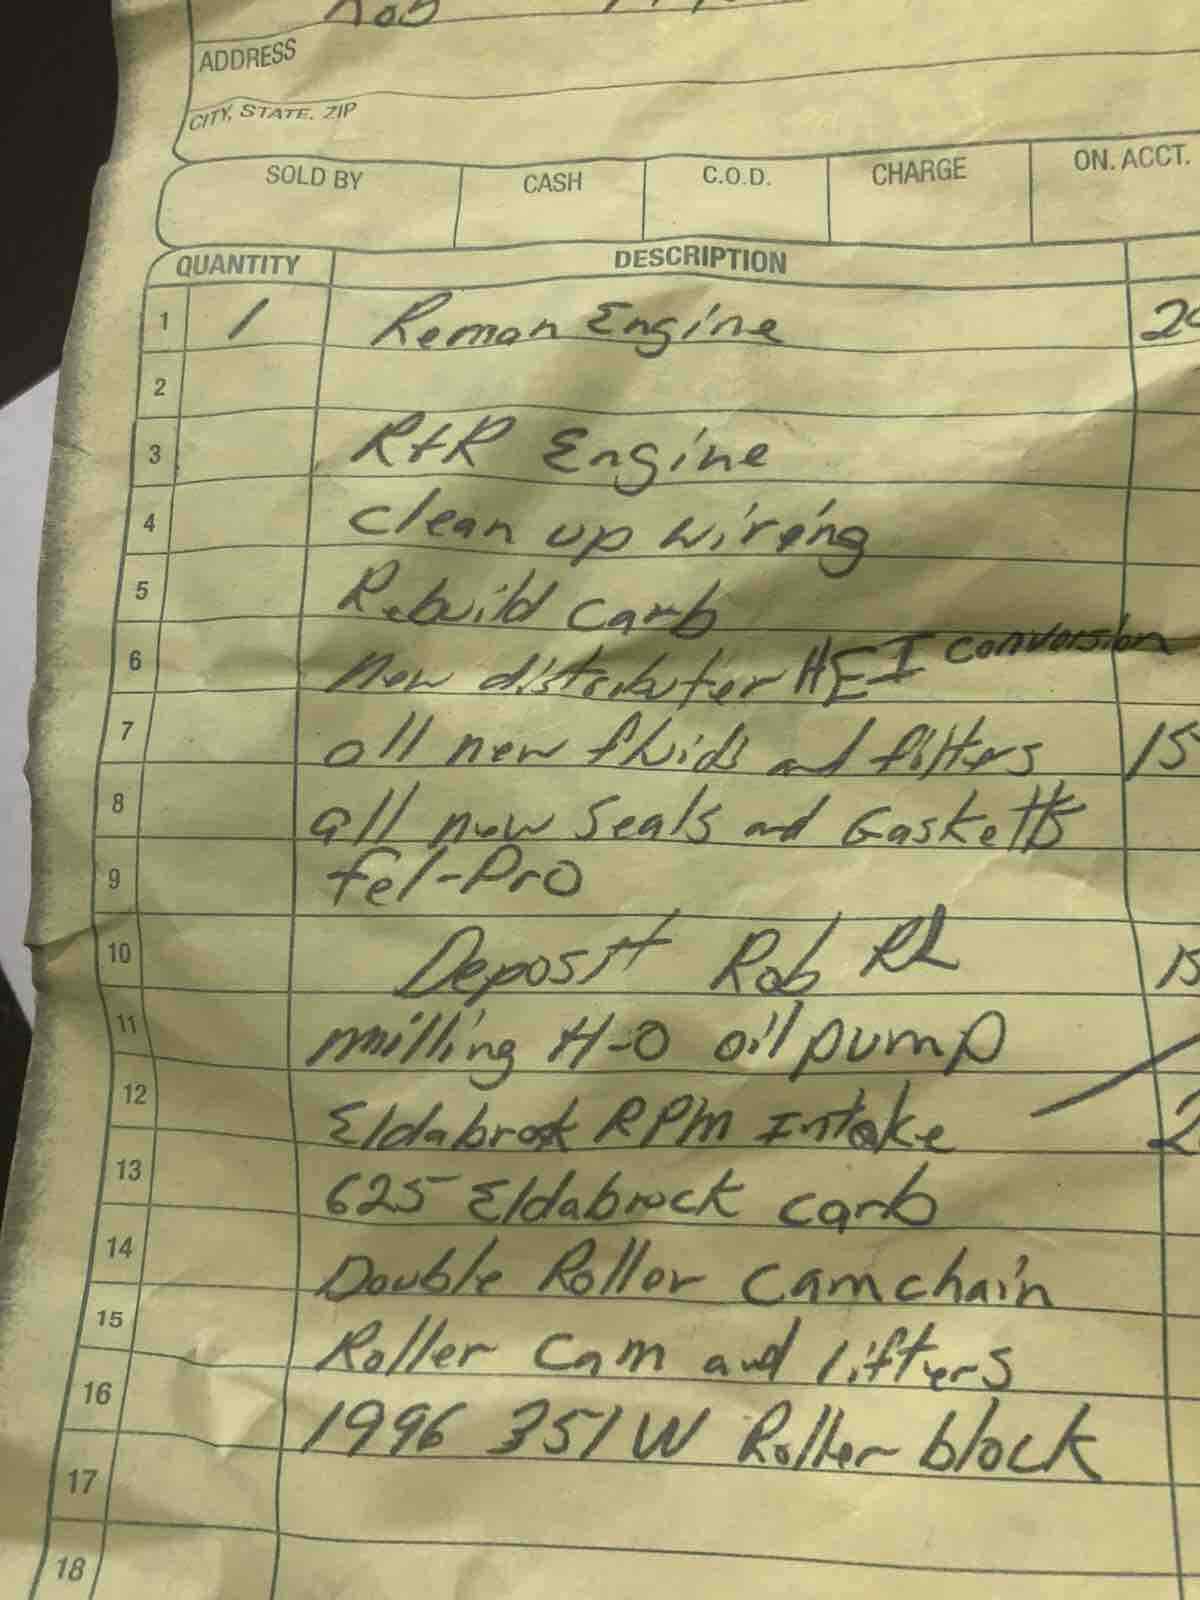 Rob
ADDRESS
CITY, STATE, ZIP
SOLD BY CASH C.O.D. CHARGE ON. ACCT.
QUANTITY DESCRIPTION
1 1 Reman Engine
2
3 R+R Engine
4 clean up wiring
5 Rebuild carb
6 new distributer HEI conversion
7 all new fluids and filters 15
8 all new seals and Gasketts
9 fel-Pro
10 Deposit Rob RL
11 milling H-O oil pump
12 Eldabrock RPM Intake 2
13 625 Eldabrock carb
14 Double Roller camchain
15 Roller cam and lifters
16 1996 351W Roller block
17
18